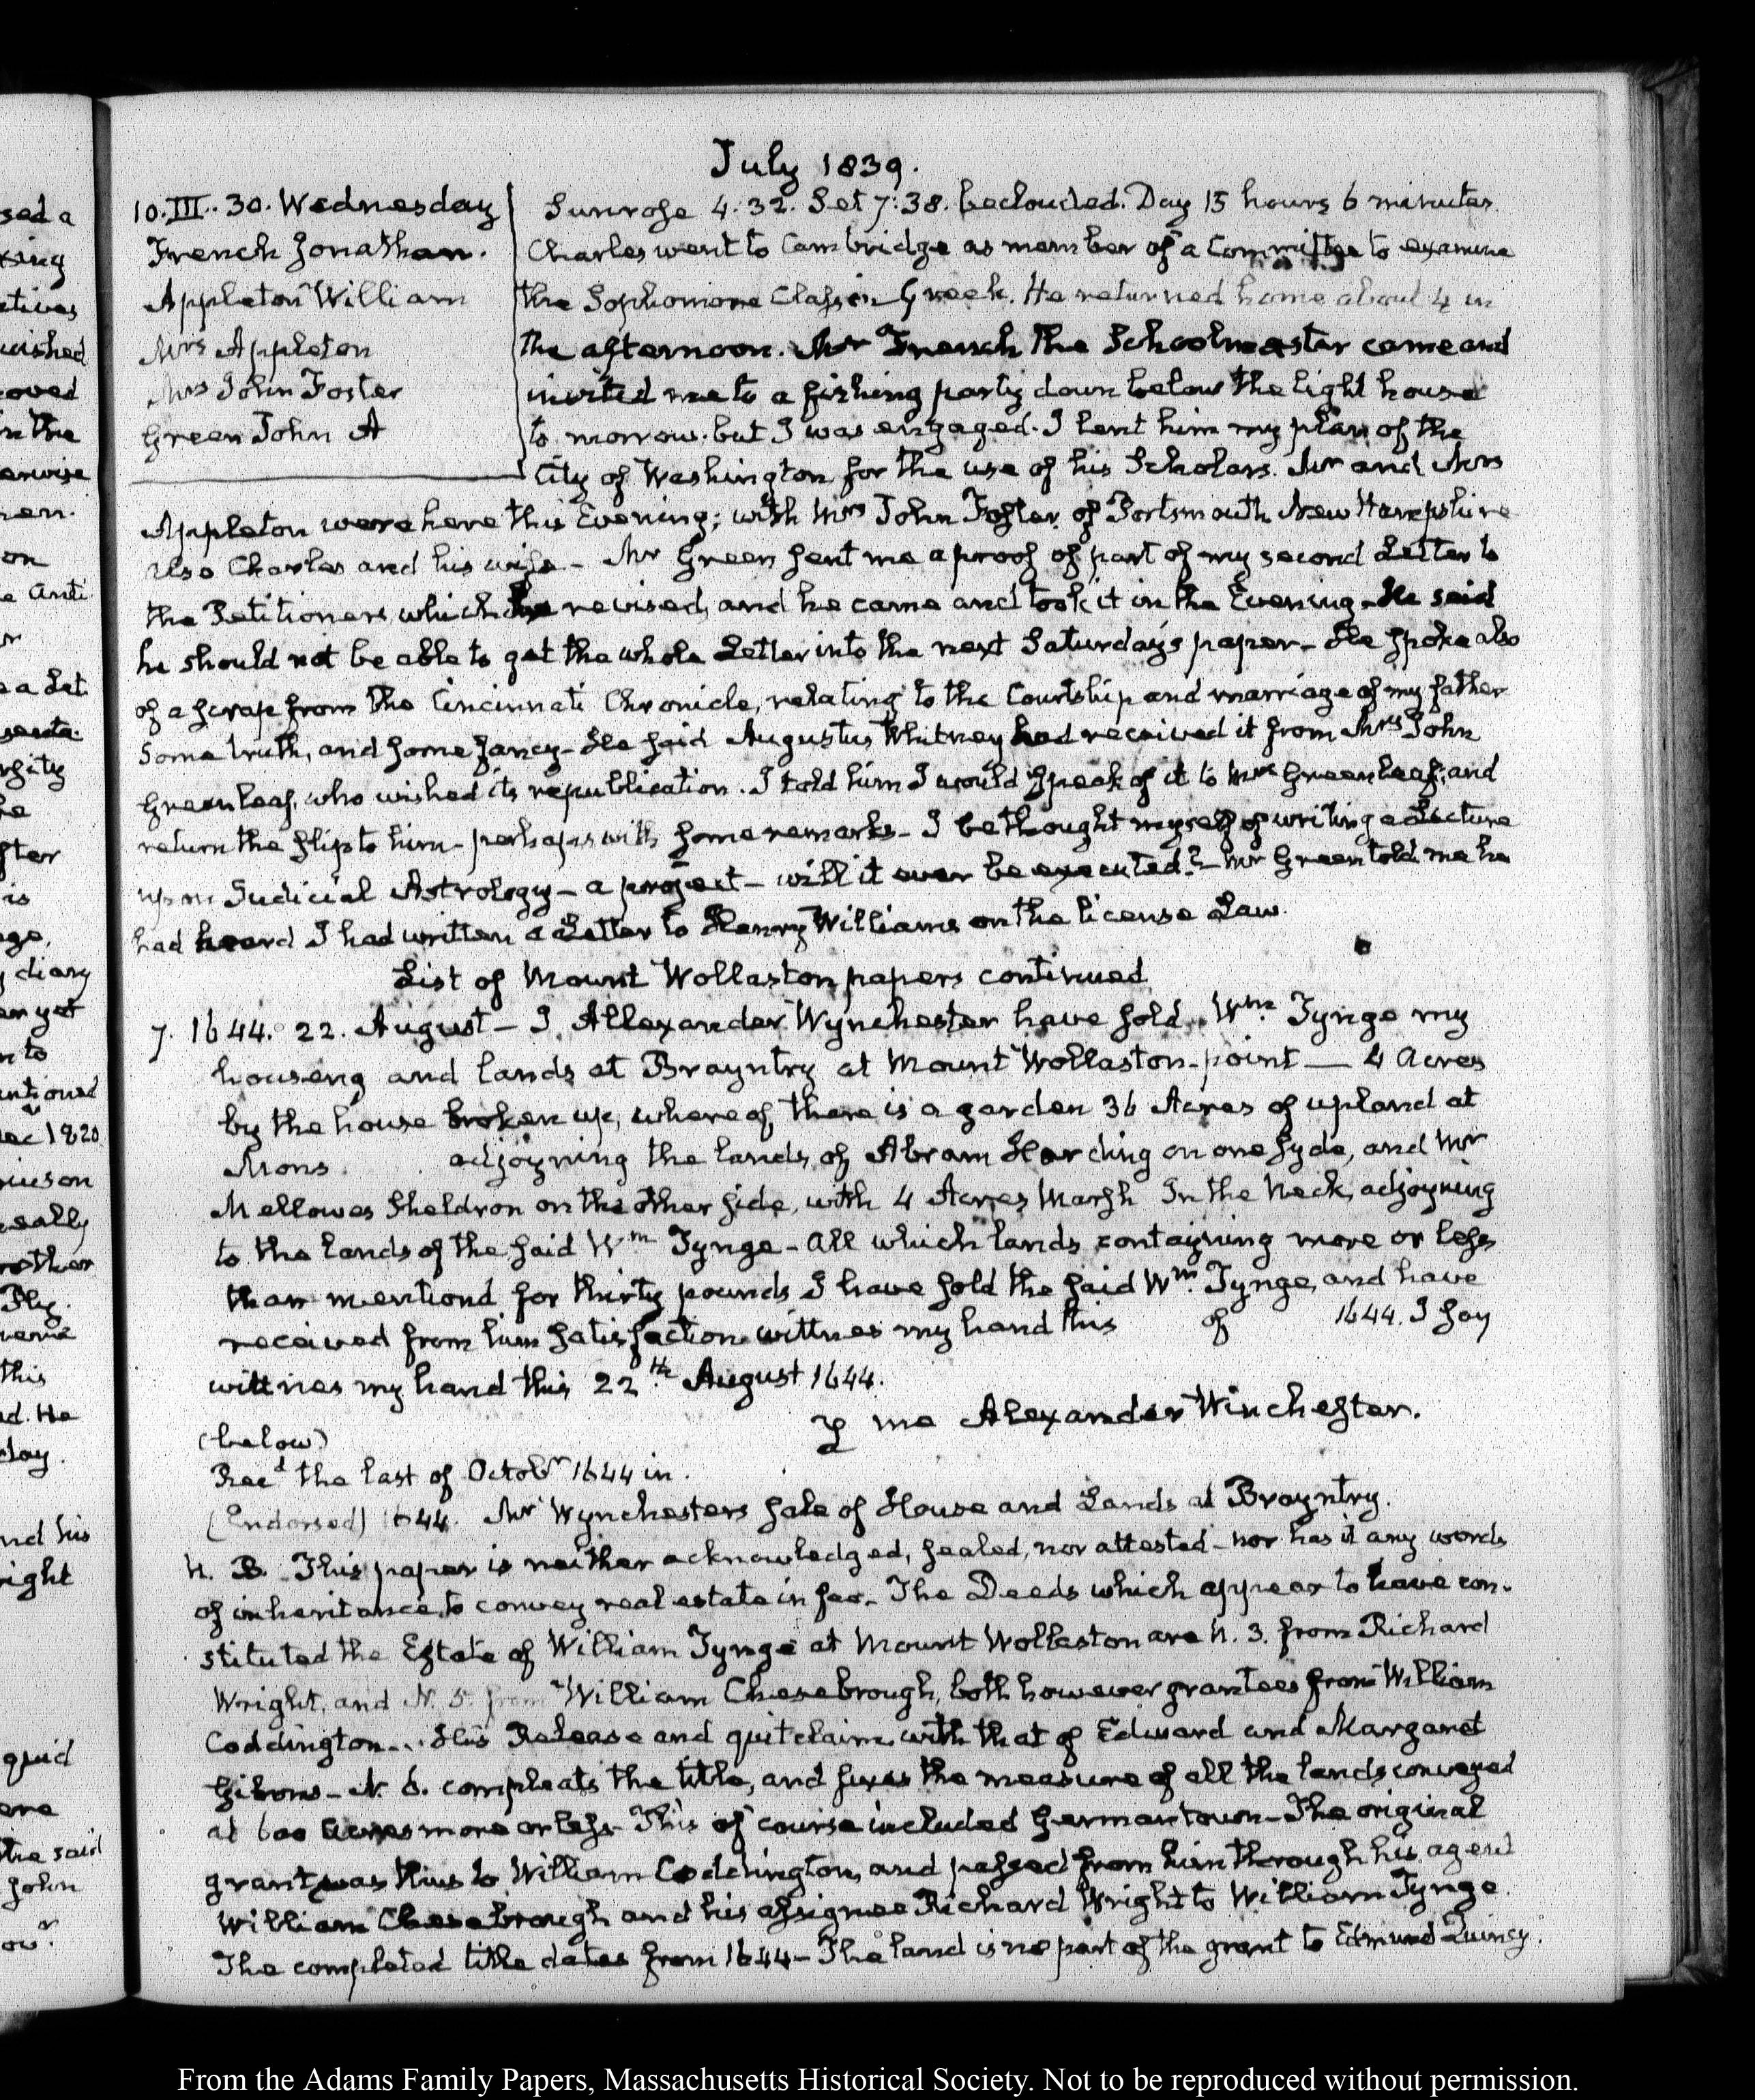 July 1839.
10. III. 30. Wednesday
French Jonathan.
Appleton William
Mrs Appleton
Mrs John Foster
Green John A
Sunrose 4:32. Set 7:38. beclouded. Day 15 hours 6 minutes.
Charles went to Cambridge as member of a Committee to examine
the Sophomore Class in Greek. He returned home about 4 in
the afternoon. Mr French the Schoolmaster came and
invited me to a fishing party down below the light house
to morrow. but I was engaged. I lent him my plan of the
City of Washington for the use of his Scholars. Mr and Mrs
Appleton were here this Evening; with Mrs John Foster of Portsmouth New Hampshire
also Charles and his wife - Mr Green sent me a proof of part of my second Letter to
the Petitioners, which revised, and he came and took it in the Evening. He said
he should not be able to get the whole Letter into the next Saturday's paper - He spoke also
of a scrap from the Cincinnati Chronicle, relating to the Courtship and marriage of my father
Some truth, and some fancy - He said Augustus Whitney had received it from Mrs John
Greenleaf, who wished its republication. I told him I would speak of it to Mrs Greenleaf; and
return the slip to him - perhaps with some remarks - I bethought myself of writing a Lecture
upon Judicial Astrology - a project - will it ever be executed? - Mr Green told me he
had heard I had written a Letter to Henry Williams on the license Law.
List of Mount Wollaston papers continued
7. 1644. 22. August - I Allexander Wynchester have sold Wm. Tynge my
houseng and lands at Brayntry at Mount Wollaston-point — 4 Acres
by the house broken up, whereof, there is a garden 36 Acres of upland at
Mons. adjoyning the lands of Abram Harding on one syde, and Mr
Mellowes Sheldron on the other side, with 4 Acres Marsh In the Neck, adjoyning
to the lands of the said Wm Tynge - All which lands contayning more or less
than mentiond for thirty pounds I have sold the said Wm. Tynge, and have
received from him satisfaction wittnes my hand this of 1644. I say
wittnes my hand this 22th August 1644.
me Alexander Winchester.
(below)
Recd the last of Octobr 1644 in.
(Endorsed) 1644. Mr Wynchesters sale of House and Lands at Brayntry.
N. B. This paper is neither acknowledged, sealed, nor attested - nor has it any words
of inheritance, to convey real estate in fee. The Deeds which appear to have con-
stituted the Estate of William Tynge at Mount Wollaston are N. 3. from Richard
Wright, and N. 5. from William Chesebrough, both however grantees from William
Coddington... His Release and quitclaim with that of Edward and Margaret
Gibons - N. 6. compleats the title, and fixes the measure of all the lands conveyed
at 600 acres more or less - This of course included Germantown - The original
grant was thus to William Coddington, and passed from him through his agent
William Chesebrough and his assignee Richard Wright to William Tynge.
The completed title dates from 1644 - The land is no part of the grant to Edmund Quincy.
From the Adams Family Papers, Massachusetts Historical Society. Not to be reproduced without permission.